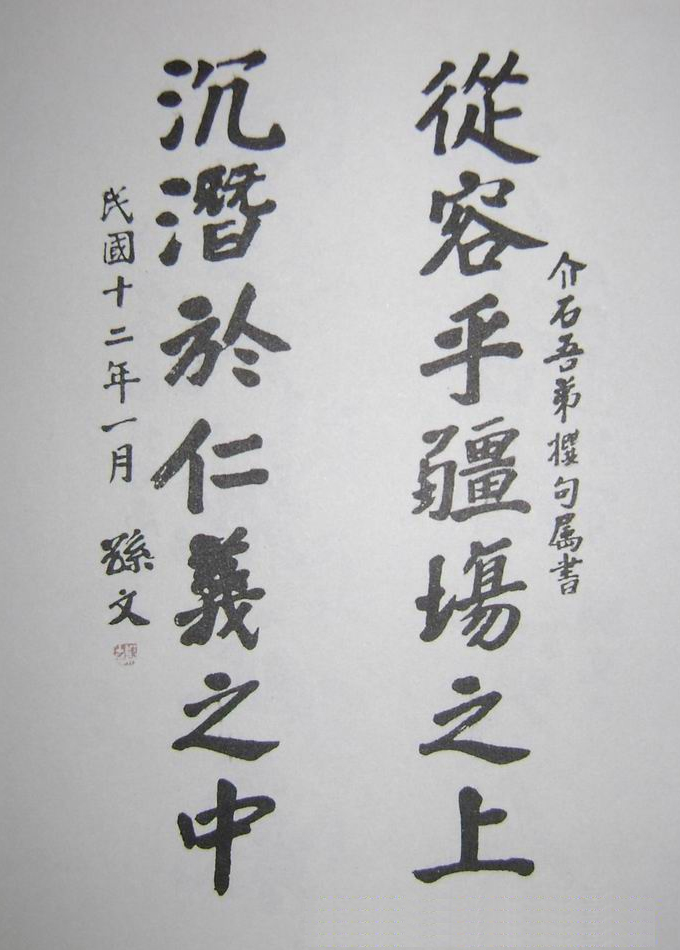 介石吾弟撰句属書
從容乎疆場之上
沉潛於仁義之中
民國十二年一月 孫文